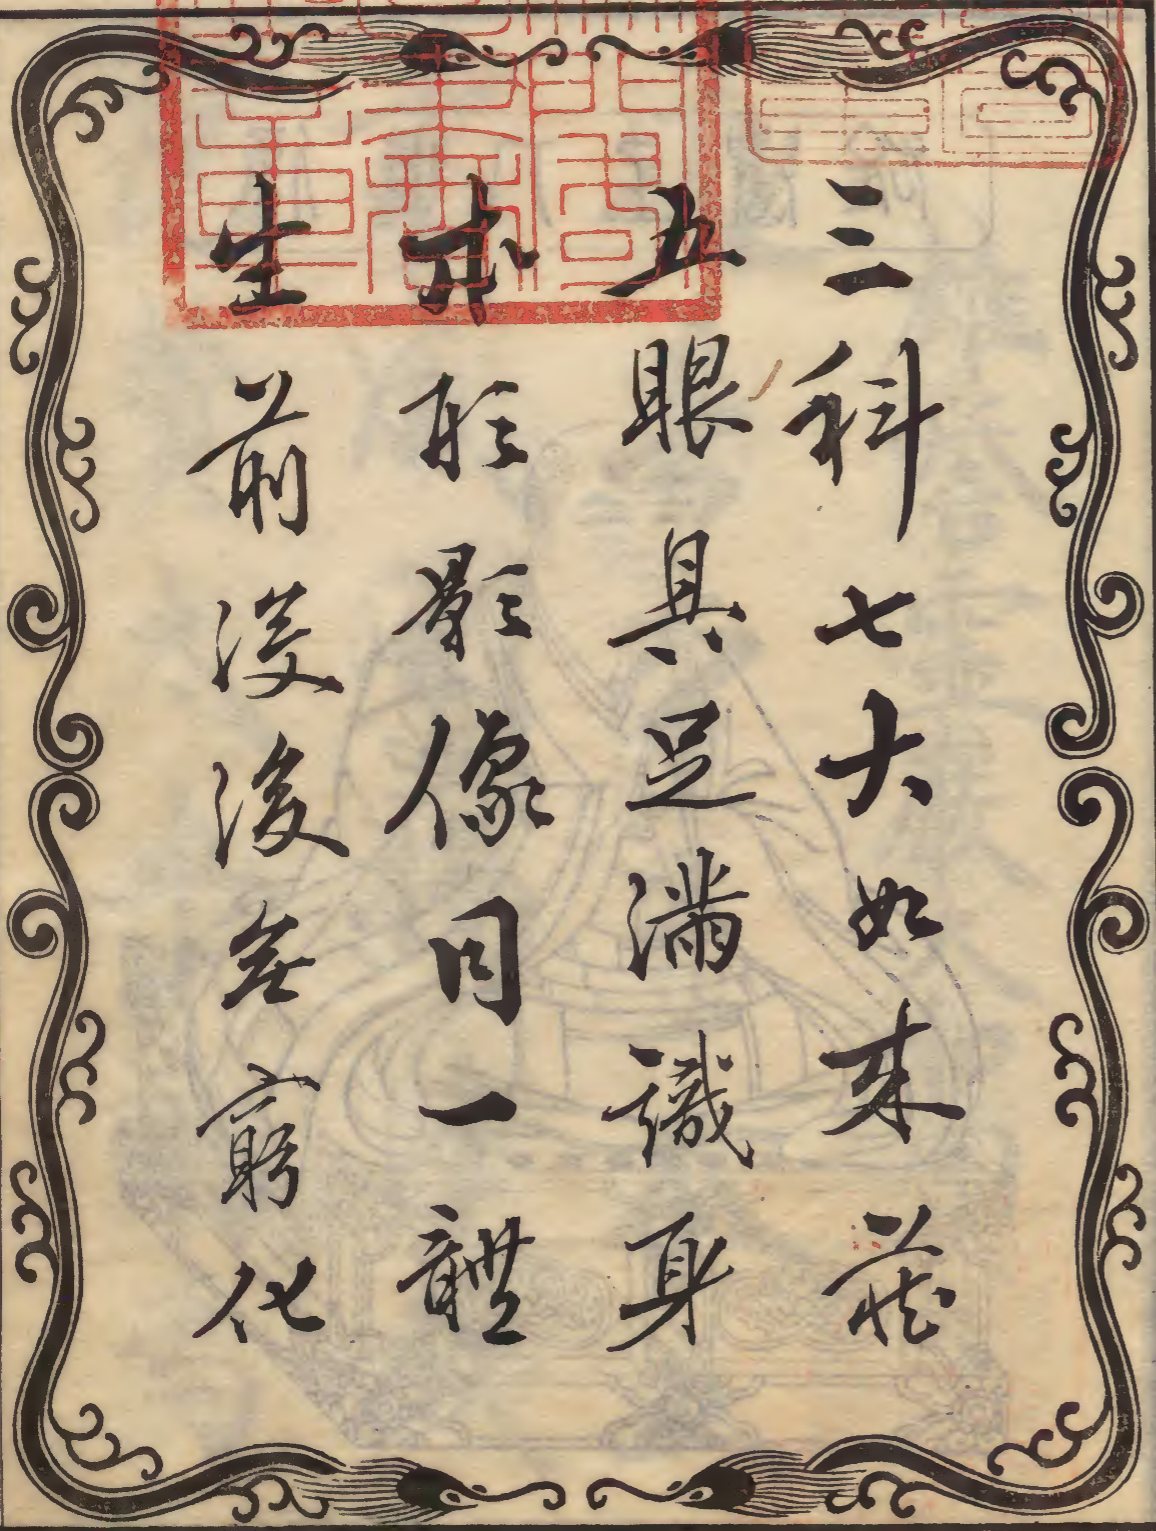 三科七大如来蔵
五眼具足滿識身
本形影像同一體
生前没後無窮化